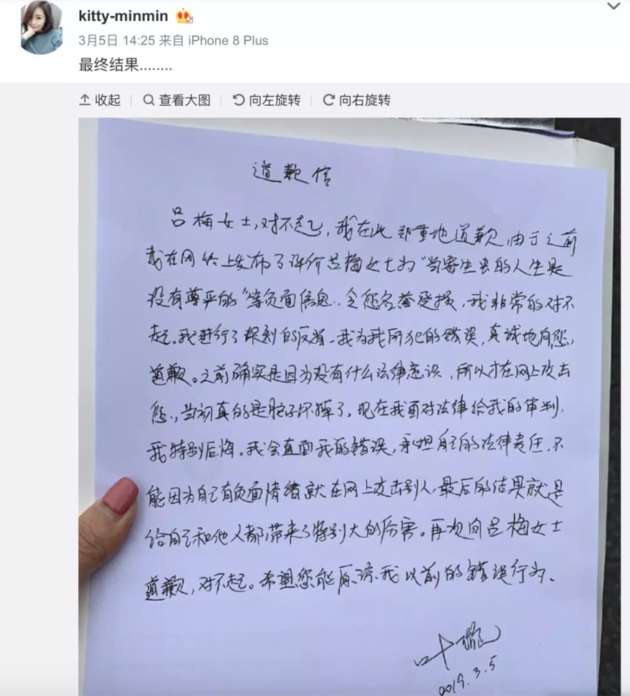 kitty-minmin
3月5日 14:25 来自 iPhone 8 Plus
最终结果........
收起 查看大图 向左旋转 向右旋转
道歉信
吕梅女士,对不起,我在此郑重地道歉,由于之前
我在网络上发布了评价吕梅女士为“当寄生虫的人生是
没有尊严的”等负面信息,令您名誉受损,我非常的对不
起。我进行了深刻的反省。我为我所犯的错误,真诚地向您,
道歉。之前确实是因为没有什么法律意识,所以才在网上攻击
您,当初真的是脑子坏掉了,现在我面对法律给我的审判,
我特别后悔。我会直面我的错误,承担自己的法律责任,不
能因为自己有负面情绪就在网上攻击别人,最后的结果就是
给自己和他人都带来了特别大的伤害。再次向吕梅女士
道歉,对不起。希望您能原谅我以前的错误行为。
叶
2019.3.5